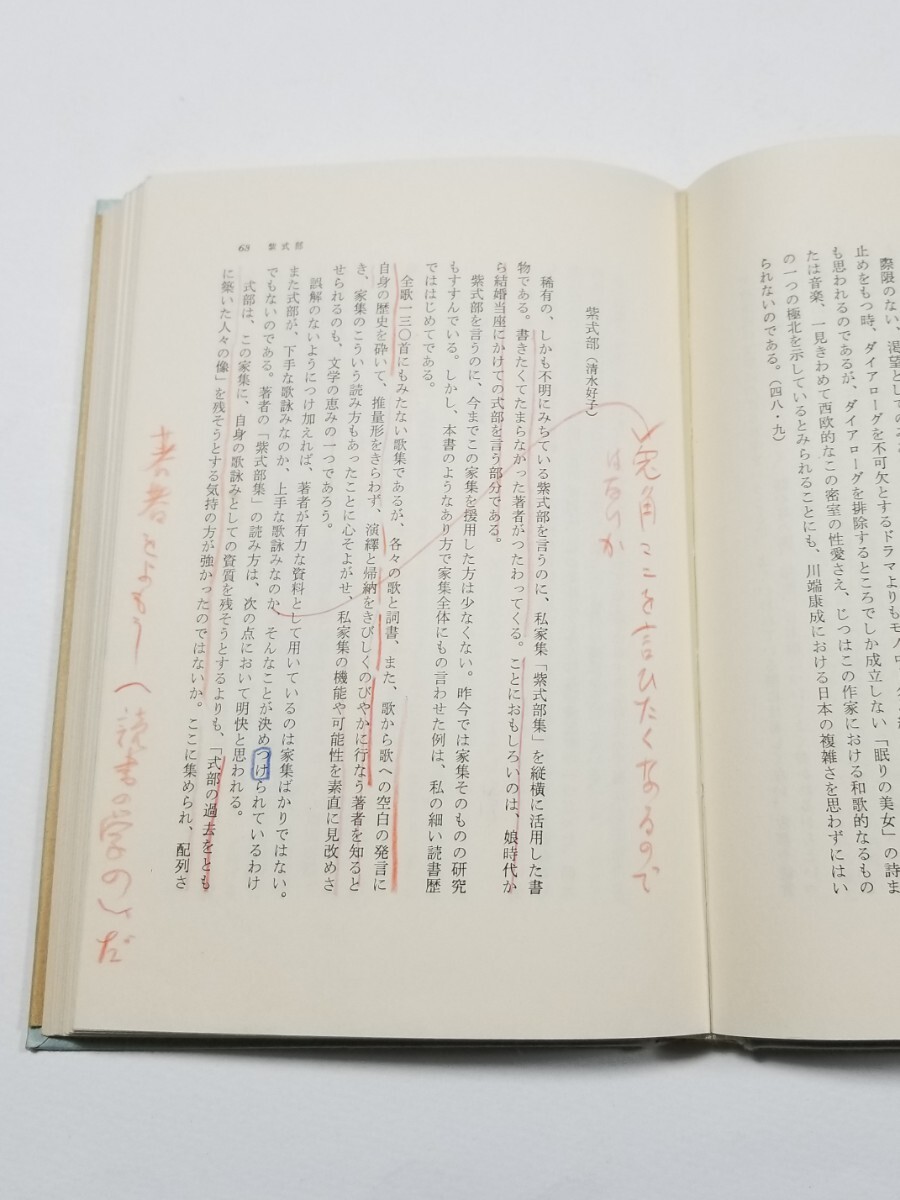 際限のない、渇望としての
止めをもつ時、ダイアローグを不可欠とするドラマよりもモノ
も思われるのであるが、ダイアローグを排除するところでしか成立しない「眠りの美女」の詩ま
たは音楽、一見きわめて西欧的なこの密室の性愛さえ、じつはこの作家における和歌的なるもの
の一つの極北を示しているとみられることにも、川端康成における日本の複雑さを思わずにはい
られないのである。(四八・九)
兎角ことを言ひたくなるので
はないか
紫式部(清水好子)
稀有の、しかも不明にみちている紫式部を言うのに、私家集「紫式部集」を縦横に活用した書
物である。書きたくてたまらなかった著者がつたわってくる。ことにおもしろいのは、娘時代か
ら結婚当座にかけての式部を言う部分である。
紫式部を言うのに、今までこの家集を援用した方は少なくない。昨今では家集そのものの研究
もすすんでいる。しかし、本書のようなあり方で家集全体にもの言わせた例は、私の細い読書歴
でははじめてである。
全歌一三〇首にもみたない歌集であるが、各々の歌と詞書、また、歌から歌への空白の発言に
自身の歴史を砕いて、推量形をきらわず、演繹と帰納をきびしくのびやかに行なう著者を知ると
き、家集のこういう読み方もあったことに心そよがせ、私家集の機能や可能性を素直に見改めさ
せられるのも、文学の恵みの一つであろう。
誤解のないようにつけ加えれば、著者が有力な資料として用いているのは家集ばかりではない。
また式部が、下手な歌詠みなのか、上手な歌詠みなのか、そんなことが決めつけられているわけ
でもないのである。著者の「紫式部集」の読み方は、次の点において明快と思われる。
式部は、この家集に、自身の歌詠みとしての資質を残そうとするよりも、「式部の過去をとも
に築いた人々の像」を残そうとする気持の方が強かったのではないか。ここに集められ、配列さ
63 紫式部
著者とよもう へ読書の学の〉だ